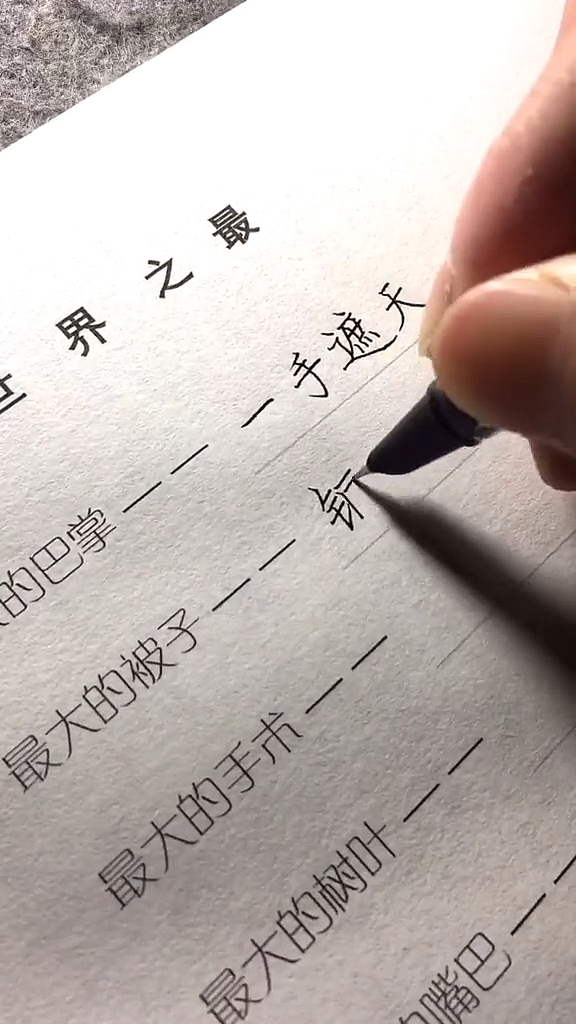 世界之最
的巴掌——一手遮天
最大的被子——
最大的手术——
最大的树叶——
嘴巴——